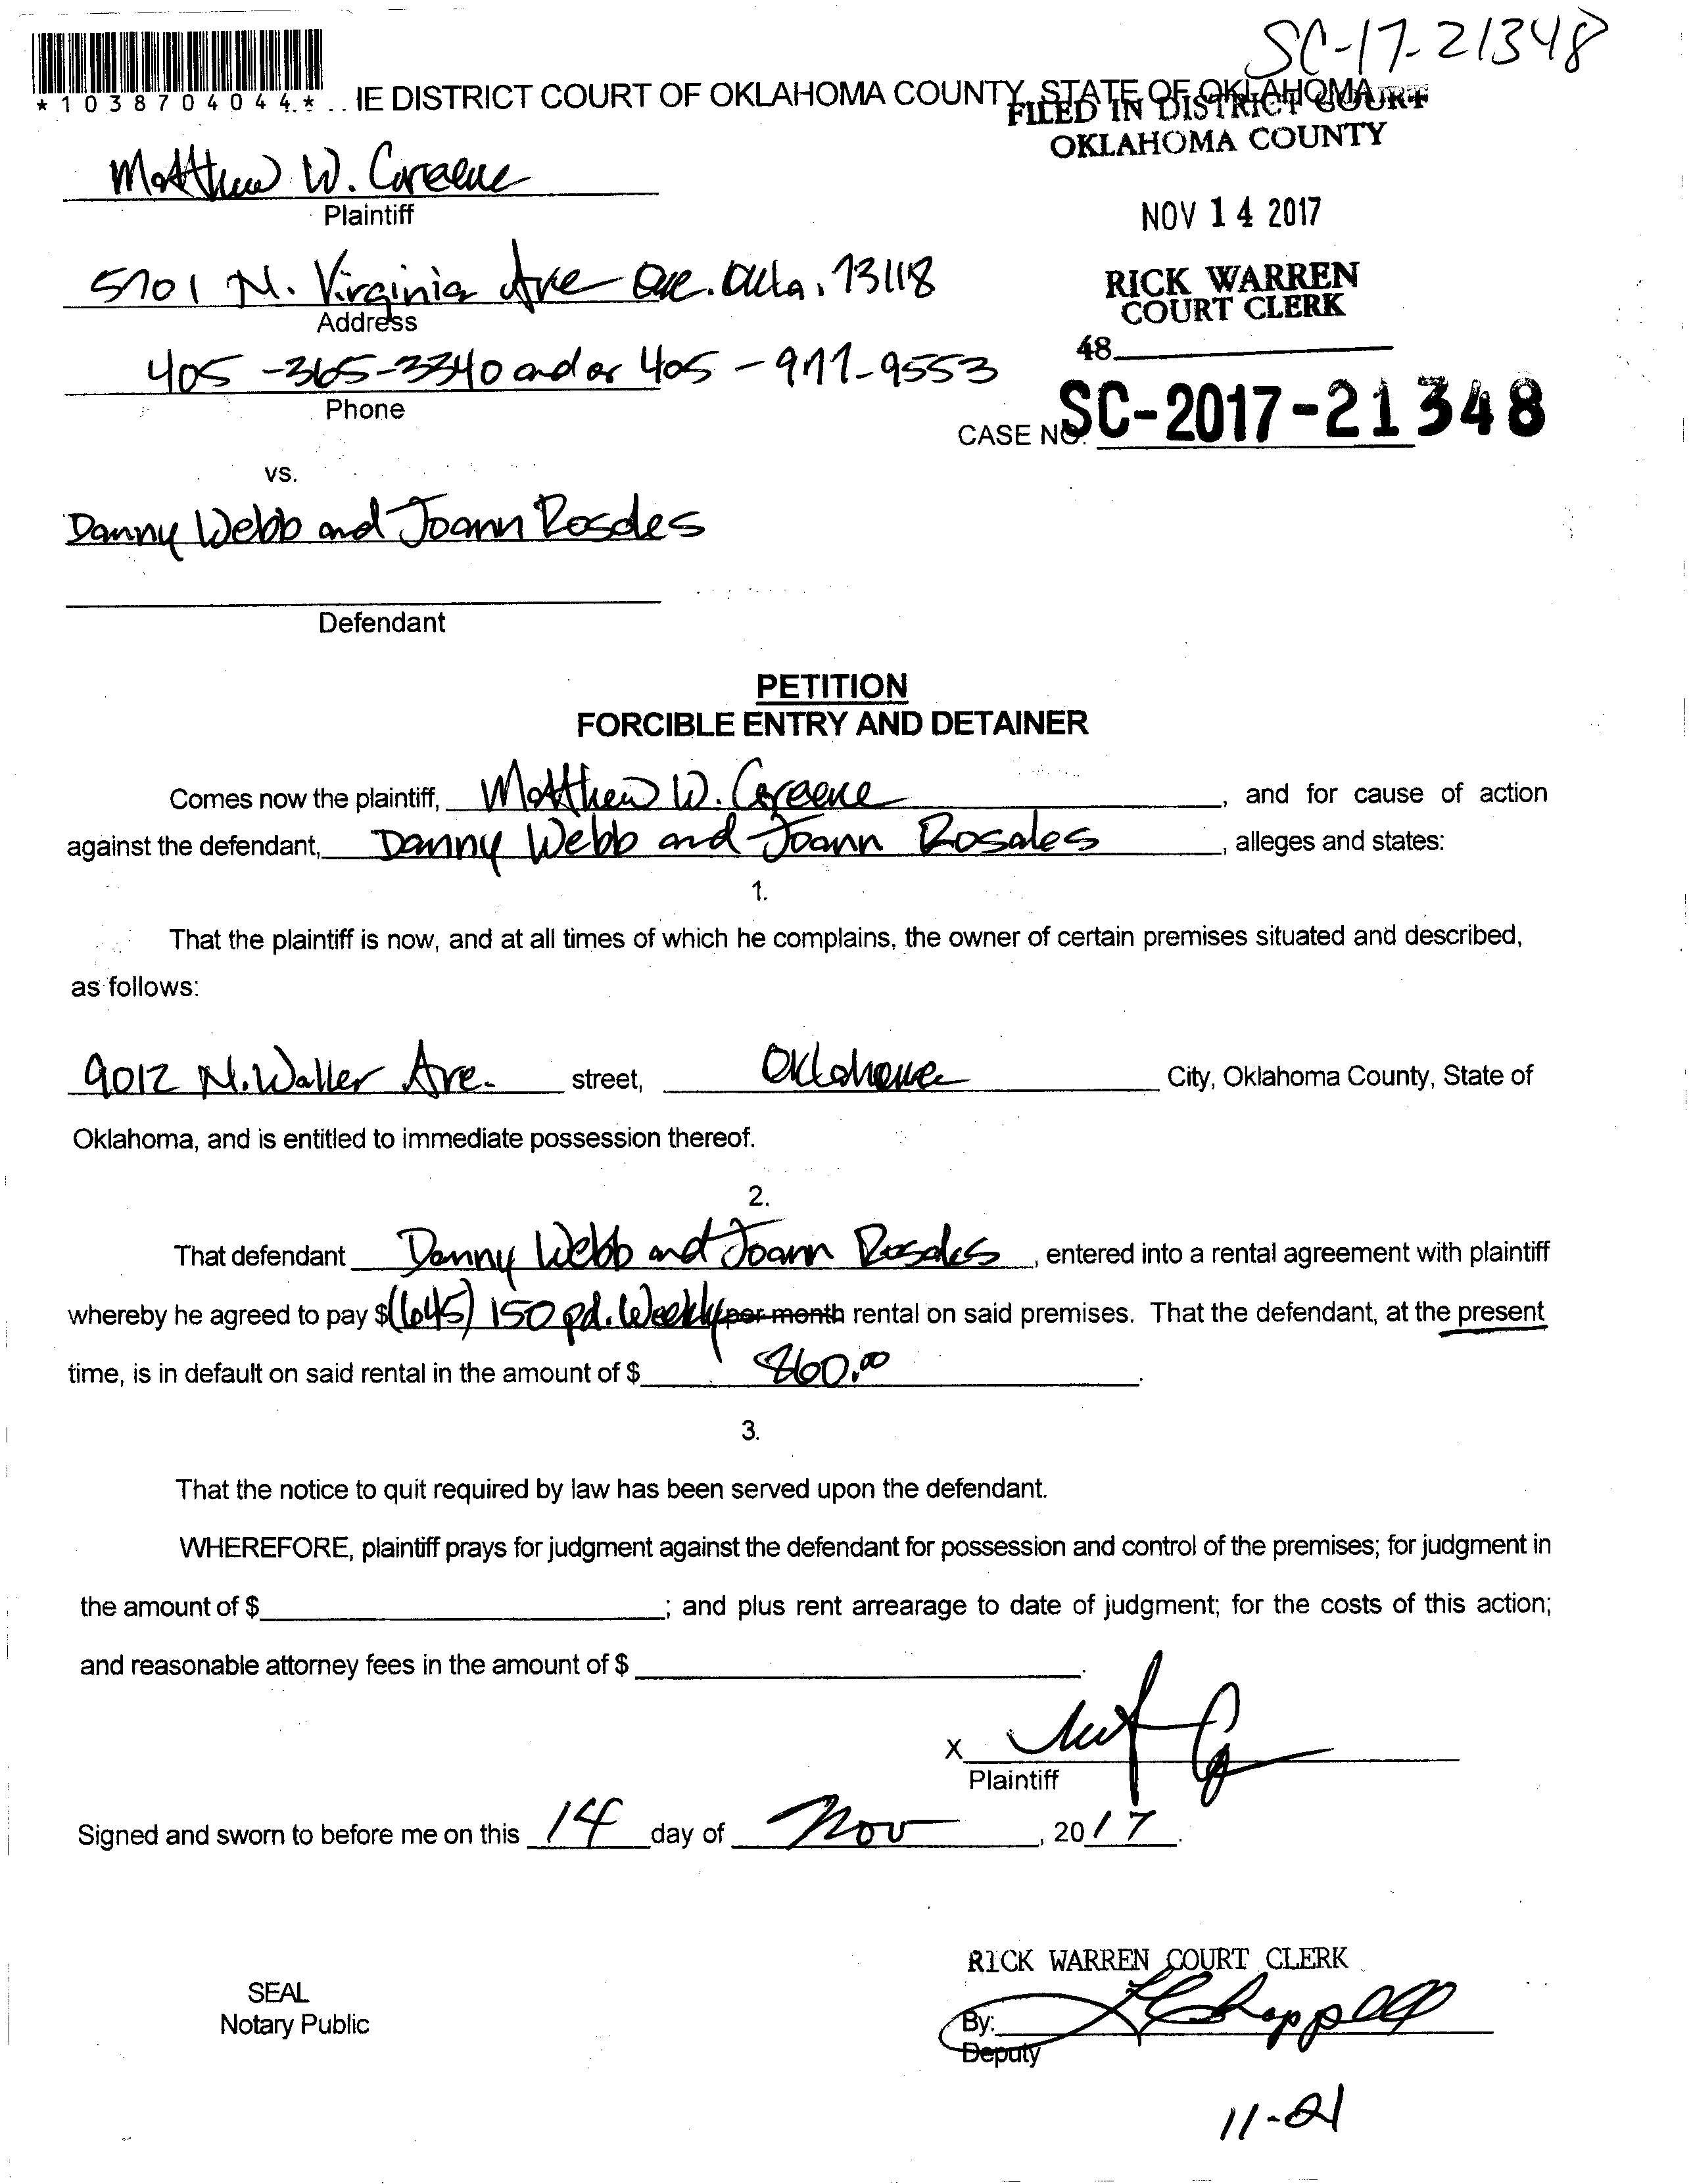 SC-17-21348
*1038704044*
IE DISTRICT COURT OF OKLAHOMA COUNTY, STATE OF OKLAHOMA
FILED IN DISTRICT COURT
OKLAHOMA COUNTY
Matthew W. Greene
Plaintiff
NOV 14 2017
5701 N. Virginia Ave Okla. 73118
Address
RICK WARREN
COURT CLERK
48
405-365-3340 and or 405-977-9553
Phone
CASE NO. SC-2017-21348
vs.
Danny Webb and Joann Rosales
Defendant
PETITION
FORCIBLE ENTRY AND DETAINER
Comes now the plaintiff, Matthew W. Greene, and for cause of action
against the defendant, Danny Webb and Joann Rosales, alleges and states:
1.
That the plaintiff is now, and at all times of which he complains, the owner of certain premises situated and described,
as follows:
9012 N. Waller Ave. street, Oklahoma City, Oklahoma County, State of
Oklahoma, and is entitled to immediate possession thereof.
2.
That defendant Danny Webb and Joann Rosales, entered into a rental agreement with plaintiff
whereby he agreed to pay $(645) 150 pd. Weekly per month rental on said premises. That the defendant, at the present
time, is in default on said rental in the amount of $ 860.00.
3.
That the notice to quit required by law has been served upon the defendant.
WHEREFORE, plaintiff prays for judgment against the defendant for possession and control of the premises; for judgment in
the amount of $ ; and plus rent arrearage to date of judgment; for the costs of this action;
and reasonable attorney fees in the amount of $ .
X
Plaintiff
Signed and sworn to before me on this 14 day of Nov, 2017.
RICK WARREN COURT CLERK
SEAL
Notary Public
By: Chappell
Deputy
11-21